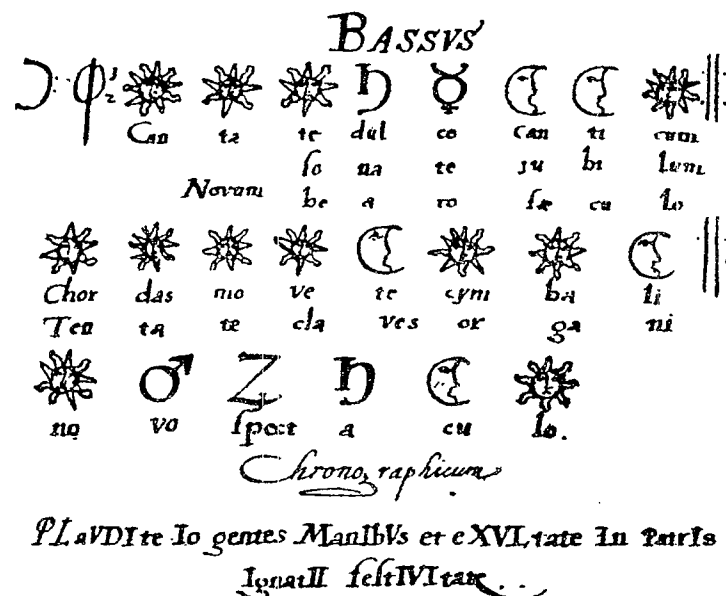 BASSVS
Can ta te dul ce can ti cum
ſo na te ju bi lum
Novum be a to ſæ cu lo
Chor das mo ve te cym ba li
Ten ta te cla ves or ga ni
no vo ſpect a cu lo.
Chronographicum
PLaVDIte Io gentes ManIbVs et eXVLtate In PatrIs
IgnatII feſtIVItate.